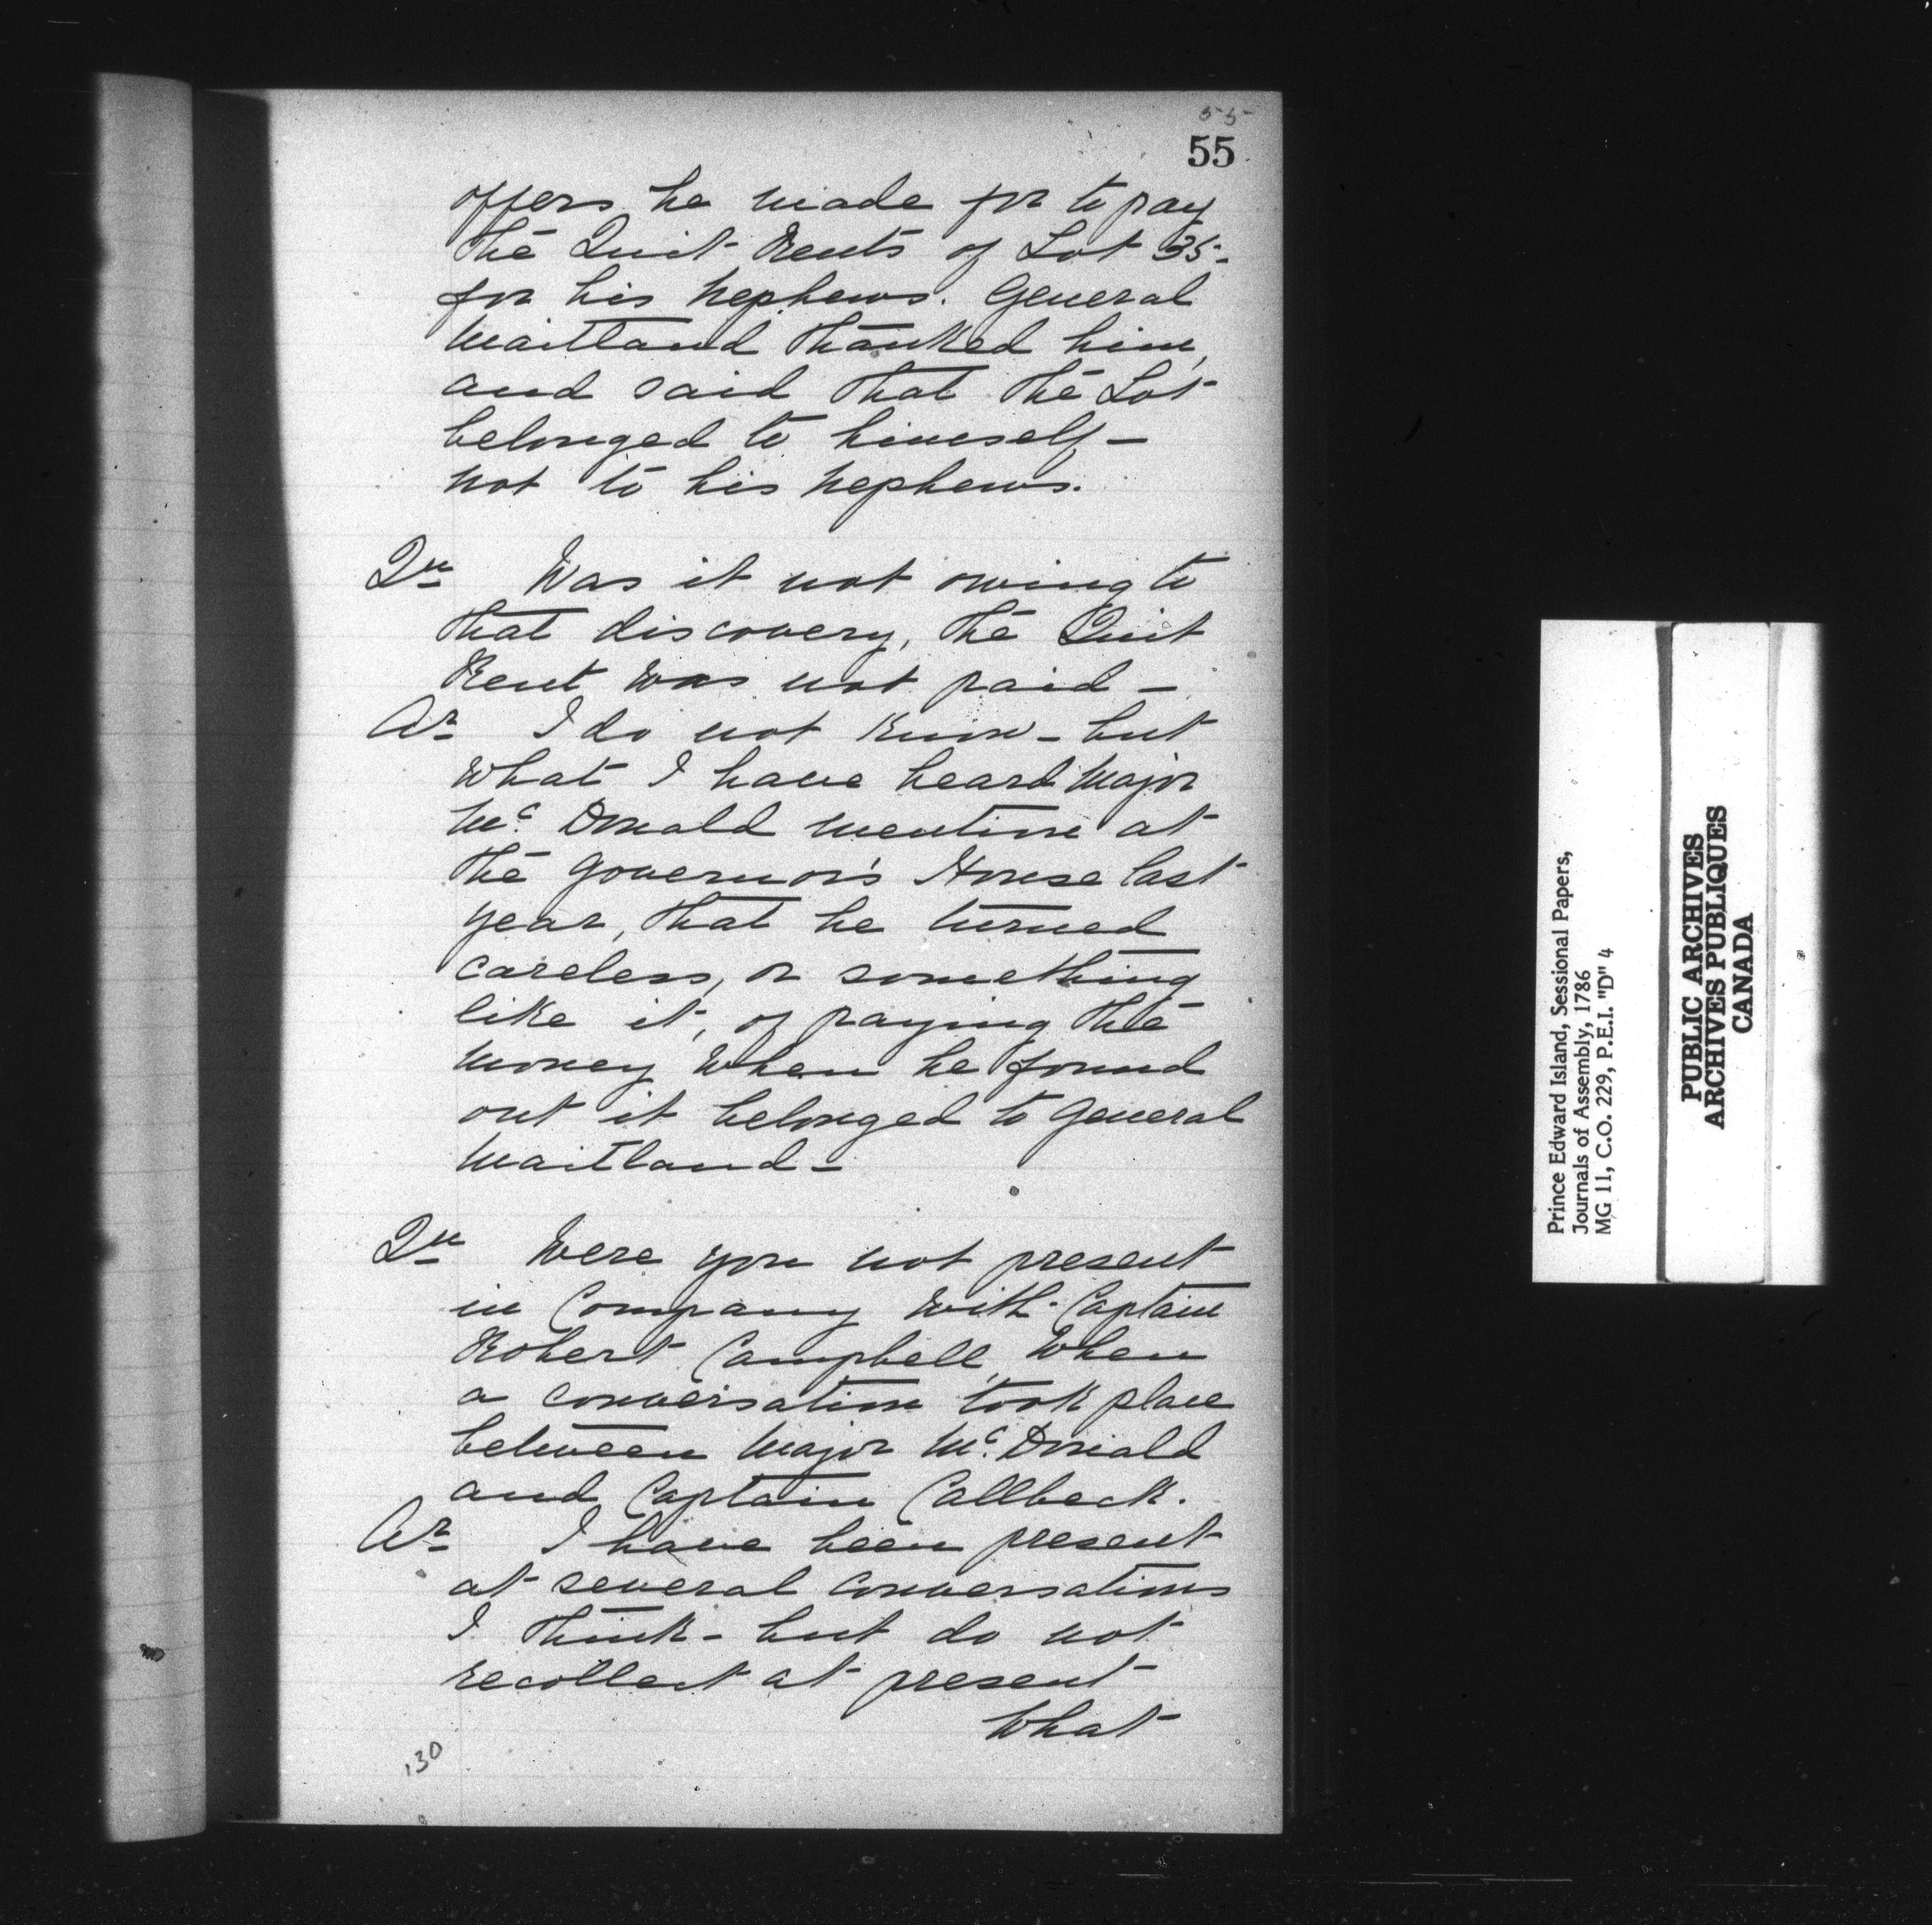 55
55
offers he made for to pay
the Quit Rents of Lot 35-
for his nephews. General
Maitland thanked him,
and said that the Lot
belonged to himself—
not to his nephews.
Qu Was it not owing to
that discovery, the Quit
Rent was not paid—
Ar I do not know—but
what I have heard Major
Mc. Donald mention at
the Governor's House last
year, that he turned
careless, or something
like it, of paying the
money when he found
out it belonged to General
Maitland—
Qu Were you not present
in Company with Captain
Robert Campbell, when
a conversation took place
between Major Mc. Donald
and Captain Callbeck.
Ar I have been present
at several conversations
I think—but do not
recollect at present
What
130
Prince Edward Island, Sessional Papers,
Journals of Assembly, 1786
MG 11, C.O. 229, P.E.I. "D" 4
PUBLIC ARCHIVES
ARCHIVES PUBLIQUES
CANADA